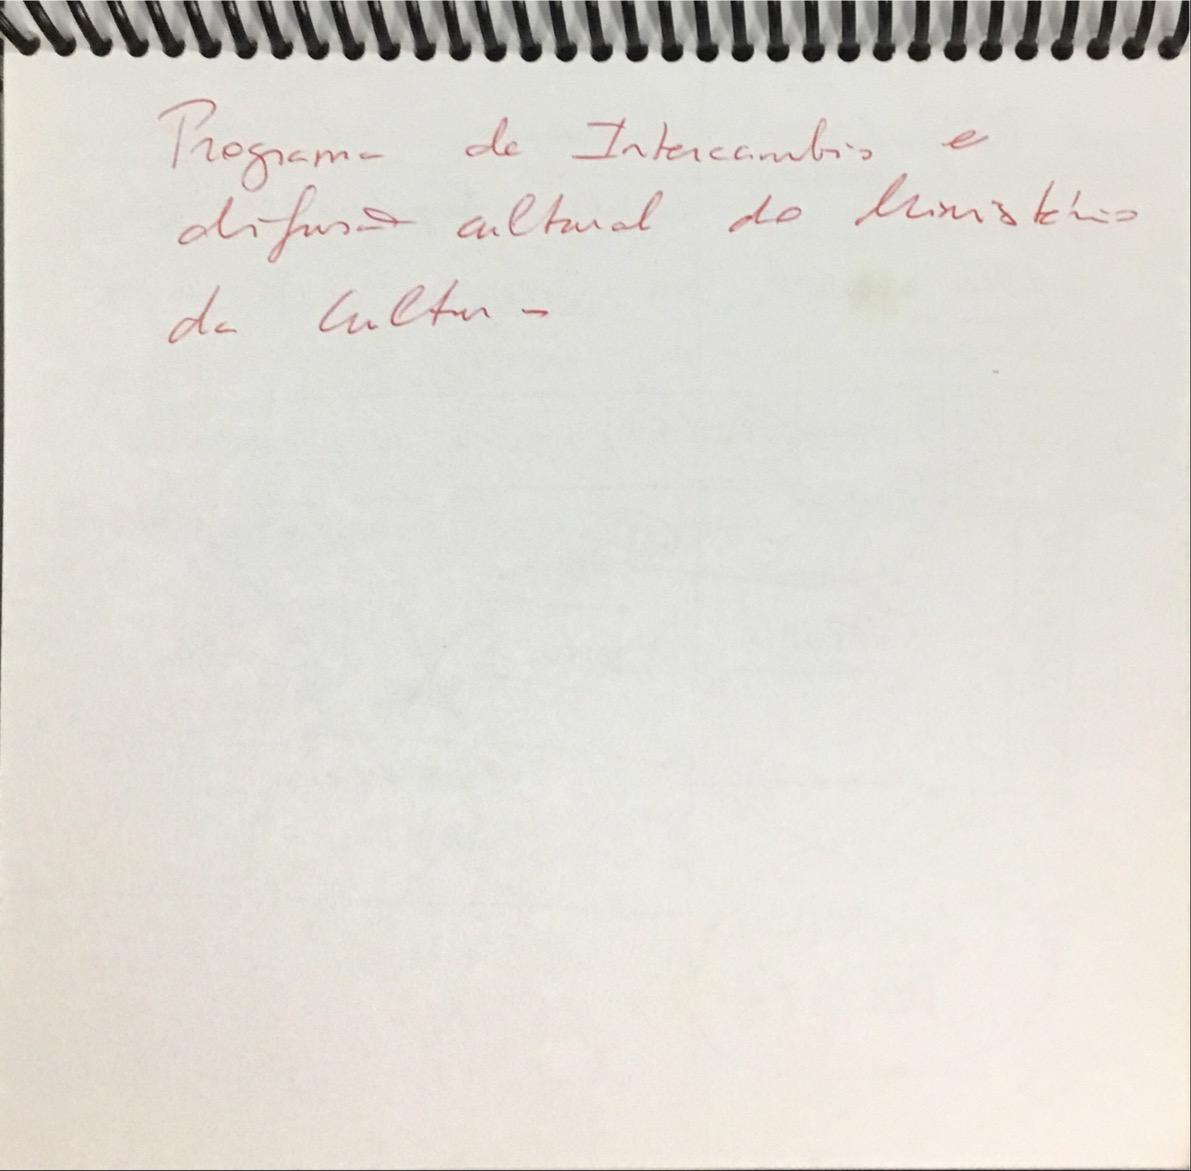 Programa de Intercambio e
difusão cultural do Ministério
da Cultura